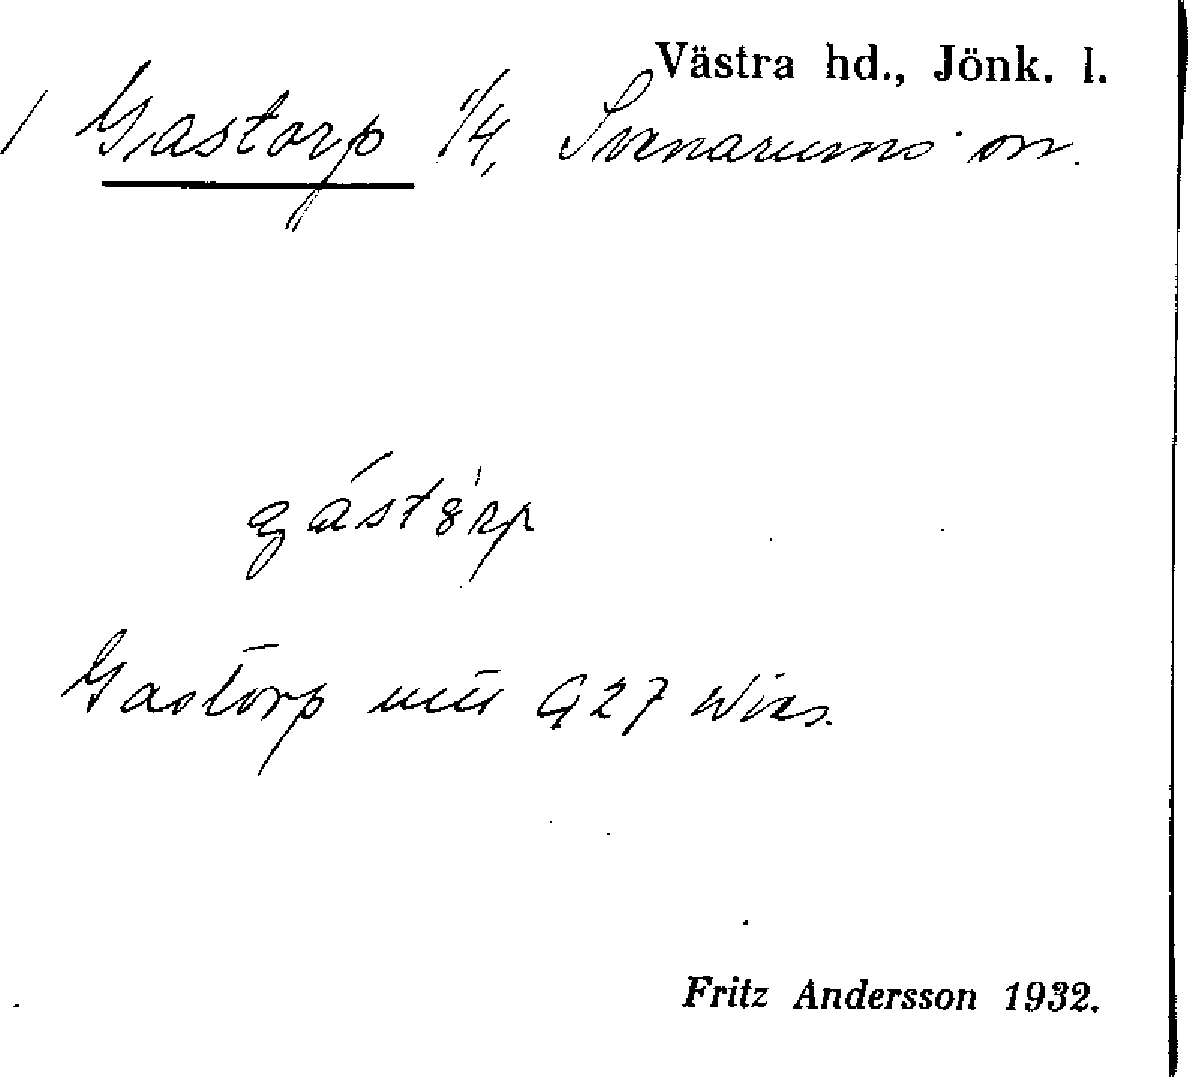 Västra hd., Jönk. l.
/ Gastorp 1/4, Svenarums sn.
gástörp
Gastorp G 27 Wies.
Fritz Andersson 1932.